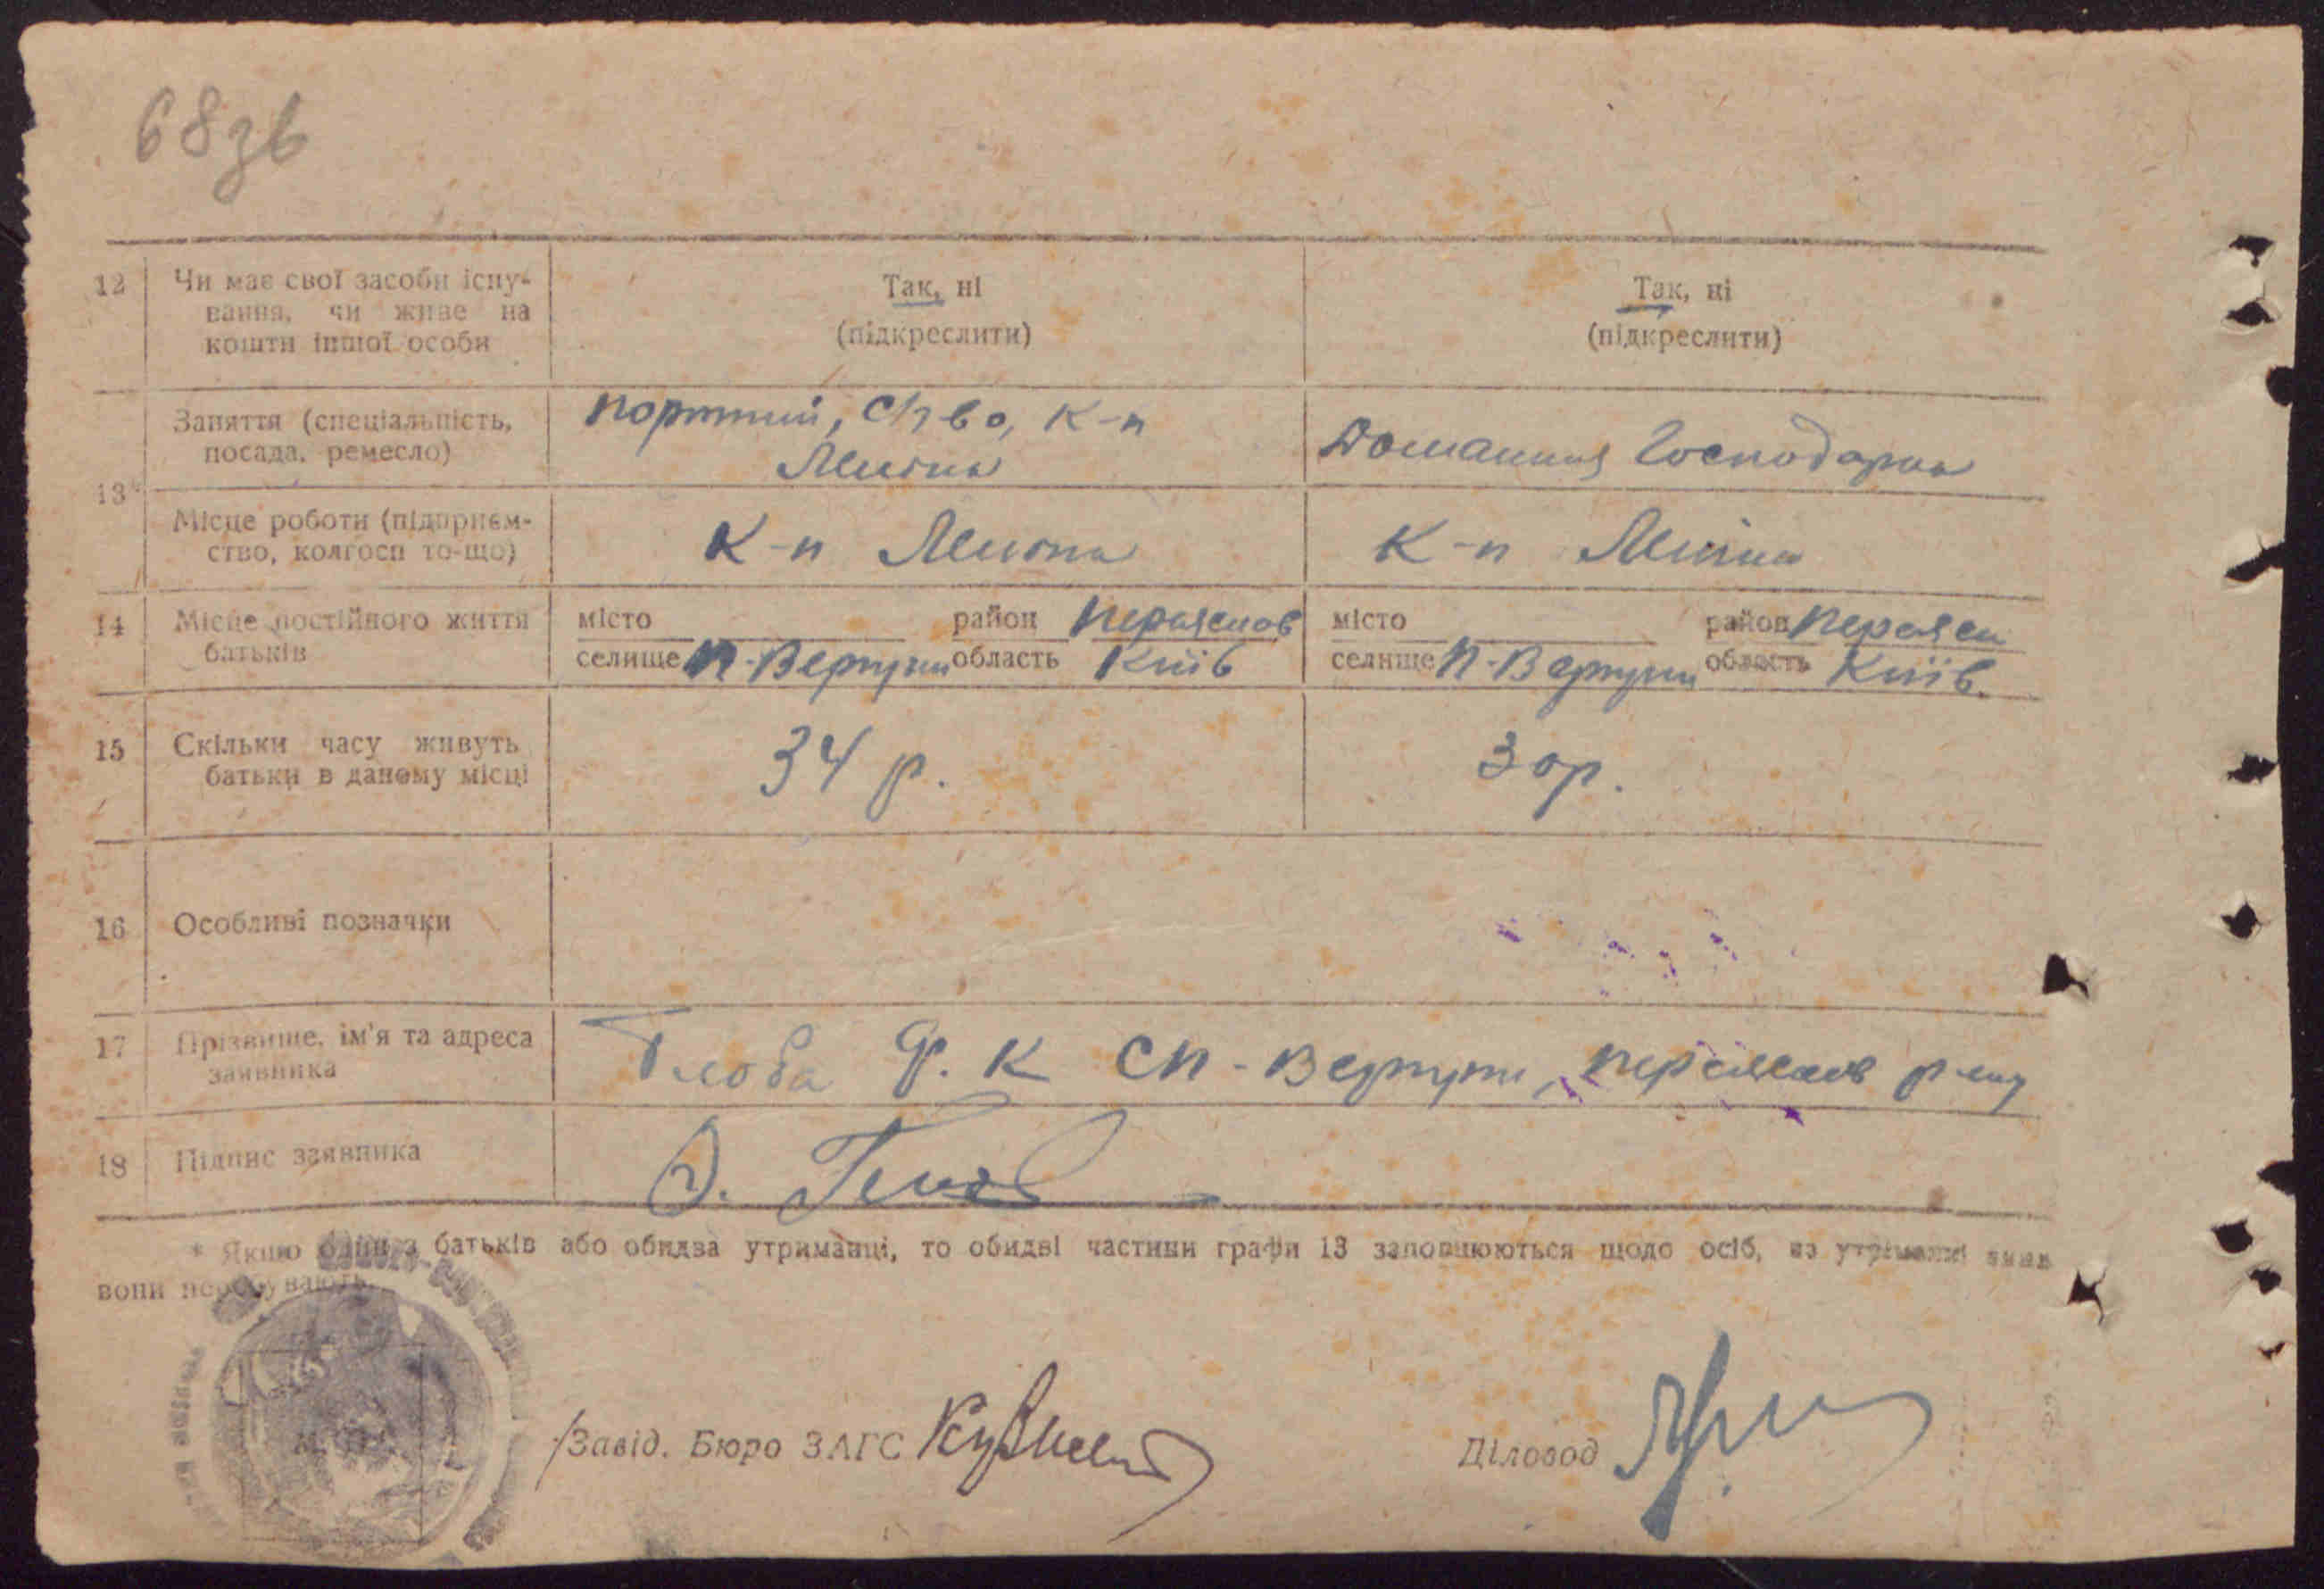 68зв
12 Чи має свої засоби існу-
вання, чи живе на
кошти іншої особи
Так, ні
(підкреслити)
Так, ні
(підкреслити)
13
Заняття (спеціальність,
посада, ремесло)
портний, К-п
Домашня Господарка
Місце роботи (підприєм-
ство, колгосп то-що)
К-п
К-п
14 Місце постійного життя
батьків
місто район Переяслов
селище П-Вергуни область Київ
місто район Переясл
селище П-Вергуни область Київ.
15 Скільки часу живуть
батьки в даному місці
34 р.
30р.
16 Особливі позначки
17 Прізвище, ім'я та адреса
заявника
Глоба Ф. К СП-Вергуни, Переяслов р-ну
18 Підпис заявника
* Якщо один з батьків або обидва утриманці, то обидві частини графи 13 заповнюються щодо осіб, на утриманні яких
вони перебувають.
Завід. Бюро ЗАГС
Діловод